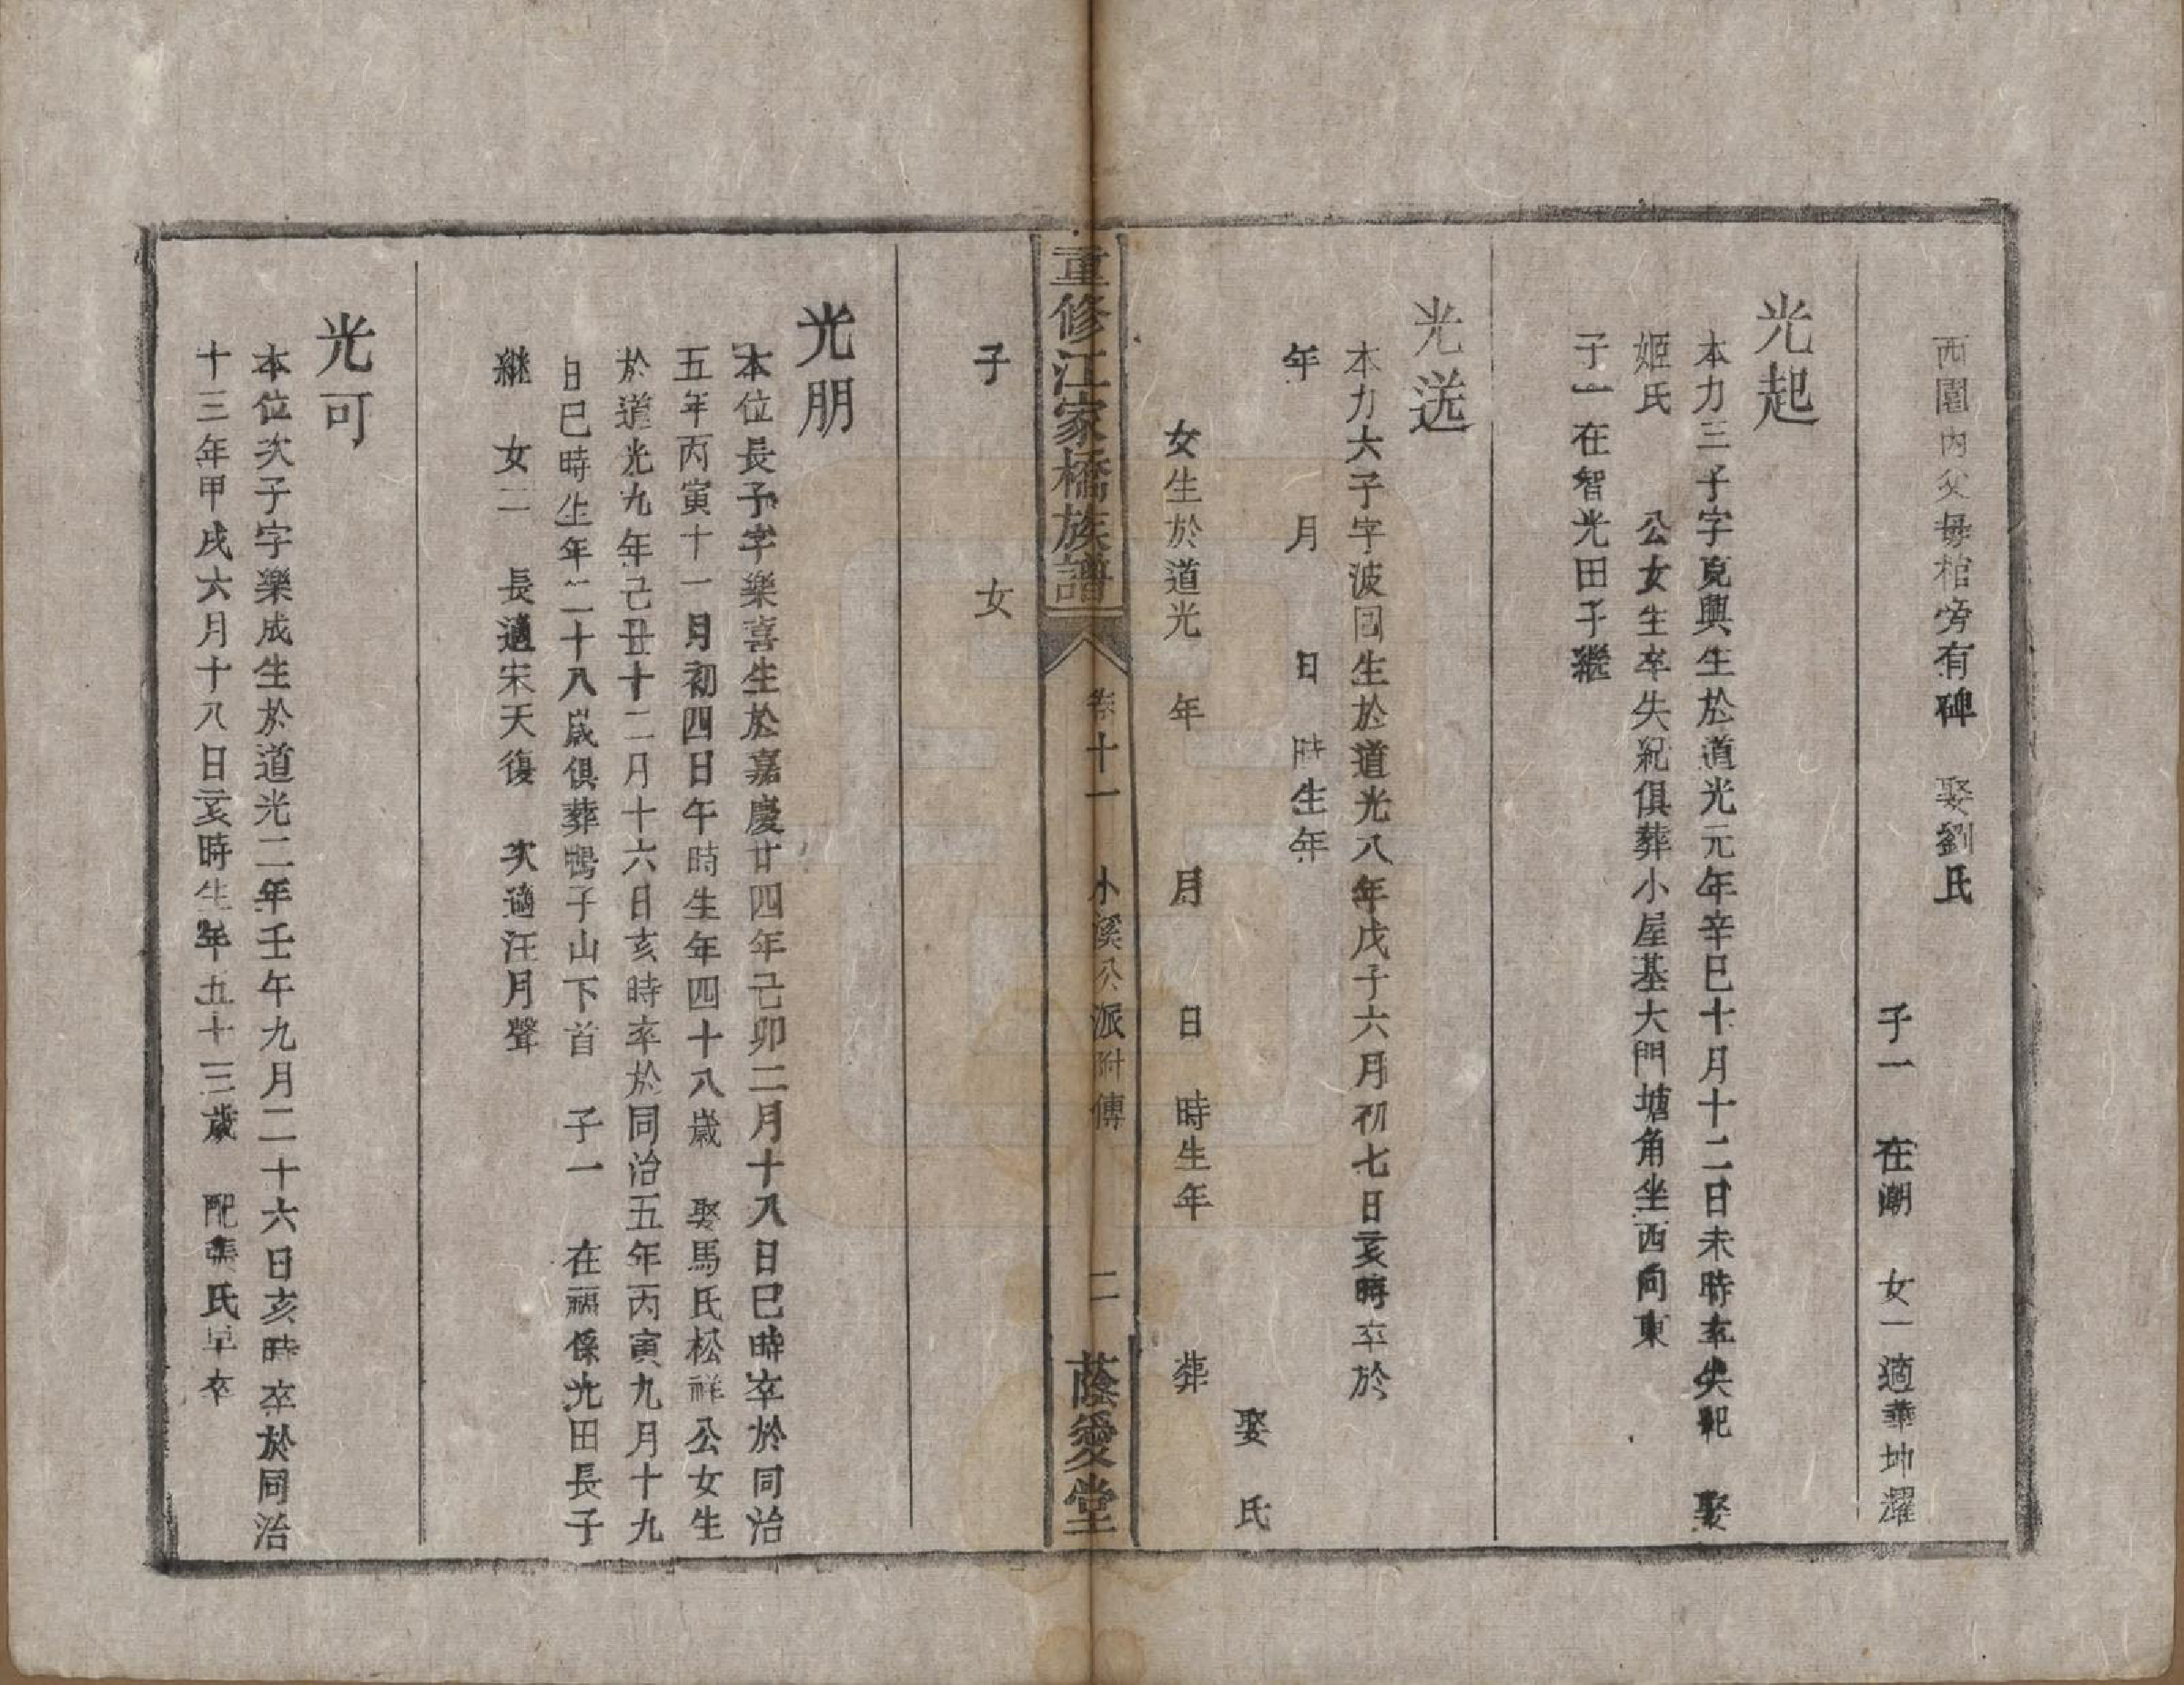 西園內父母棺旁有碑 娶劉氏
子一 在潮 女一適華坤濯
光起
本力三子字克興生於道光元年辛巳十月十二日未時卒失紀 娶
姬氏 公女生卒失紀俱葬小屋基大門塘角坐西向東
子一在智光田子繼
光送
本力六子字波囘生於道光八年戊子六月初七日亥時卒於
年 月 日 時生年
娶 氏
女生於道光 年 月 日 時生年 葬
重修江家橋族譜 卷十一 小溪公派附傳 二 蔭愛堂
子 女
光朋
本位長子字樂喜生於嘉慶廿四年己卯二月十八日巳時卒於同治
五年丙寅十一月初四日午時生年四十八歲 娶馬氏松祥公女生
於道光九年己丑十二月十六日亥時卒於同治五年丙寅九月十九
日巳時生年二十八歲俱葬鴨子山下首 子一 在福係光田長子
継 女二 長適宋天復 次適汪月聲
光可
本位次子字樂成生於道光二年壬午九月二十六日亥時卒於同治
十三年甲戌六月十八日亥時生年五十三歲 配龔氏早卒